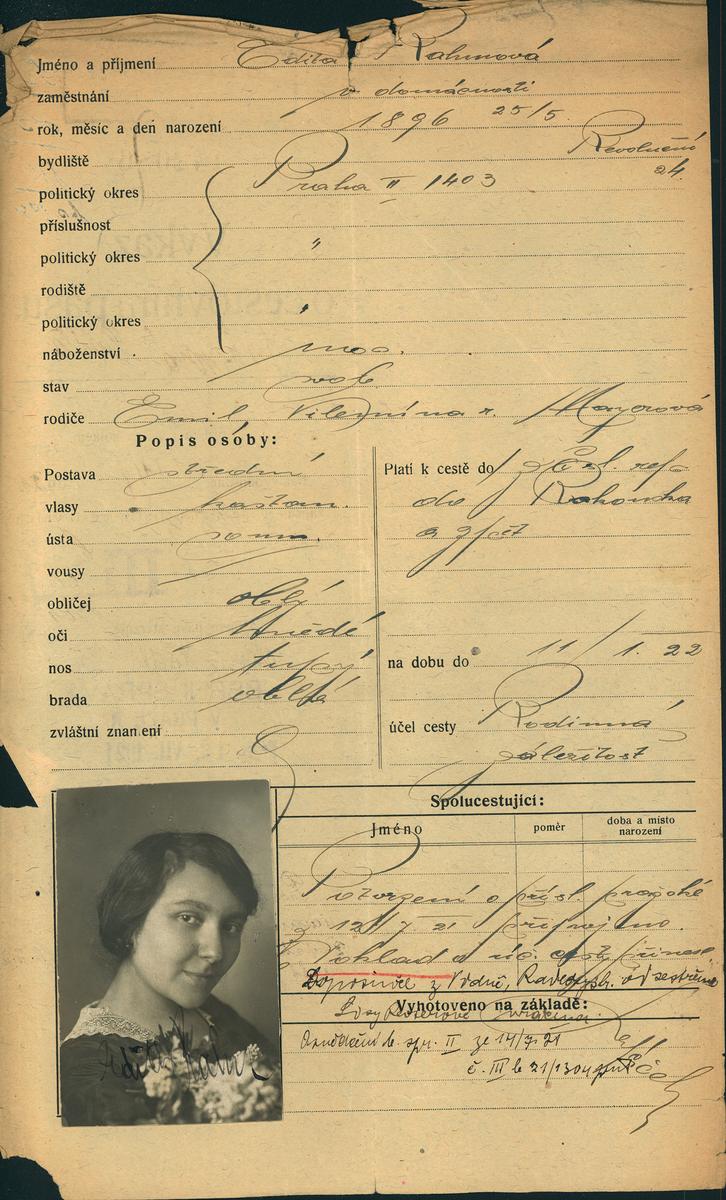 Jméno a příjmení Edita Rahmová
zaměstnání v domácnosti
rok, měsíc a den narození 1896 25/5
bydliště Revoluční
politický okres Praha II 1403 24
příslušnost
politický okres "
rodiště
politický okres "
náboženství moj.
stav svob.
rodiče Emil, Vilemína r. Mayerová
Popis osoby:
Postava střední
vlasy kaštan.
ústa soum.
vousy
obličej oblý
oči hnědé
nos tupý
brada oblá
zvláštní znamení
Platí k cestě do
do Rakouska
a zpět
na dobu do 11/1.22
účel cesty Rodinná
záležitost
Spolucestující:
Jméno poměr doba a místo narození
Potvrzení o přísl. pražské
z 12/7 21 připojeno.
Doklad o úč. cesty přinesl
Doposinel z Vídně, od sestřenice
Vyhotoveno na základě:
Osvědčení b. spr. II ze 14/7 21
č. III b 21/1304